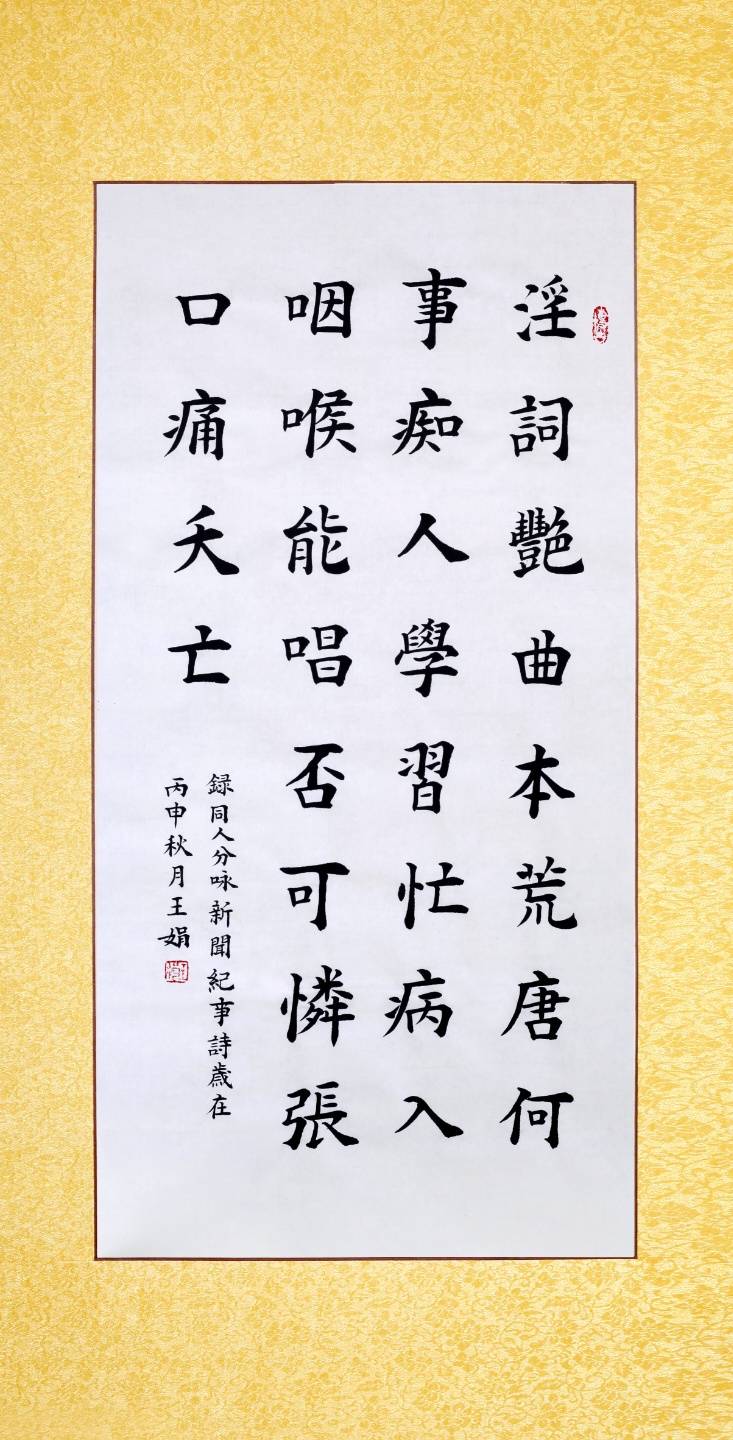 淫詞艷曲本荒唐何
事痴人學習忙病入
咽喉能唱否可憐張
口痛夭亡
録同人分咏新聞紀事詩歲在
丙申秋月王娟